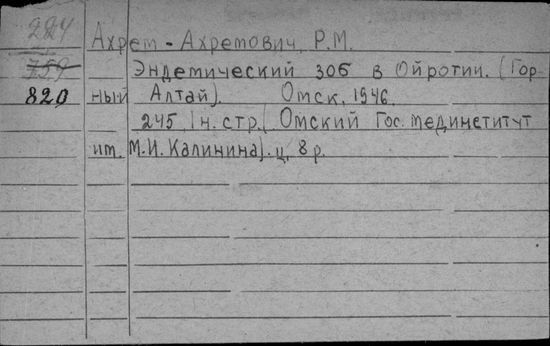 224
Ахрем-Ахремович, Р.М.
759
Эндемический зоб в Ойротии. (Гор-
820
ный Алтай). Омск, 1946.
245, 1 н. стр. (Омский Гос. мединститут
им. М.И. Калинина). ц. 8 р.